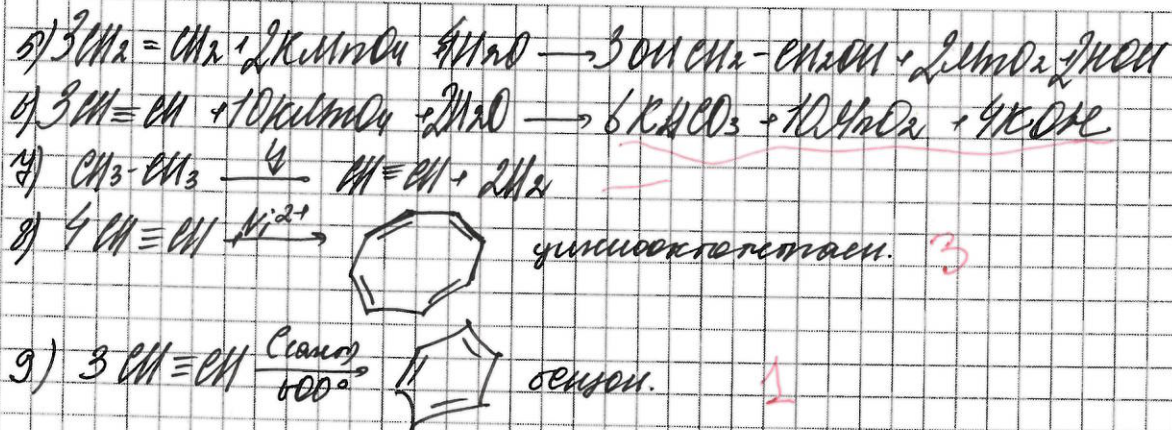 5) 3CH2 = CH2 + 2KMnO4 + 4H2O → 3OHCH2-CH2OH + 2MnO2 + 2KOH
6) 3CH≡CH + 10KMnO4 + 2H2O → 6KHCO3 + 10MnO2 + 4KOH
7) CH3-CH3 → CH≡CH + 2H2
8) 4CH≡CH Ni2+ → циклооктатетраен. 3
9) 3CH≡CH C(актив) 600° → бензол. 1